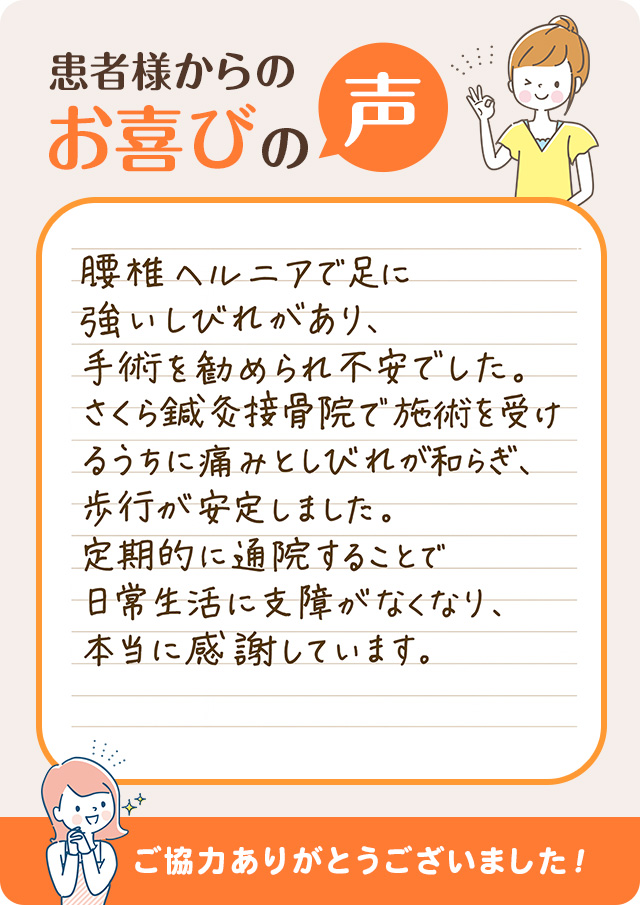 患者様からの
お喜びの声
腰椎ヘルニアで足に
強いしびれがあり、
手術を勧められ不安でした。
さくら鍼灸接骨院で施術を受け
るうちに痛みとしびれが和らぎ、
歩行が安定しました。
定期的に通院することで
日常生活に支障がなくなり、
本当に感謝しています。
ご協力ありがとうございました!